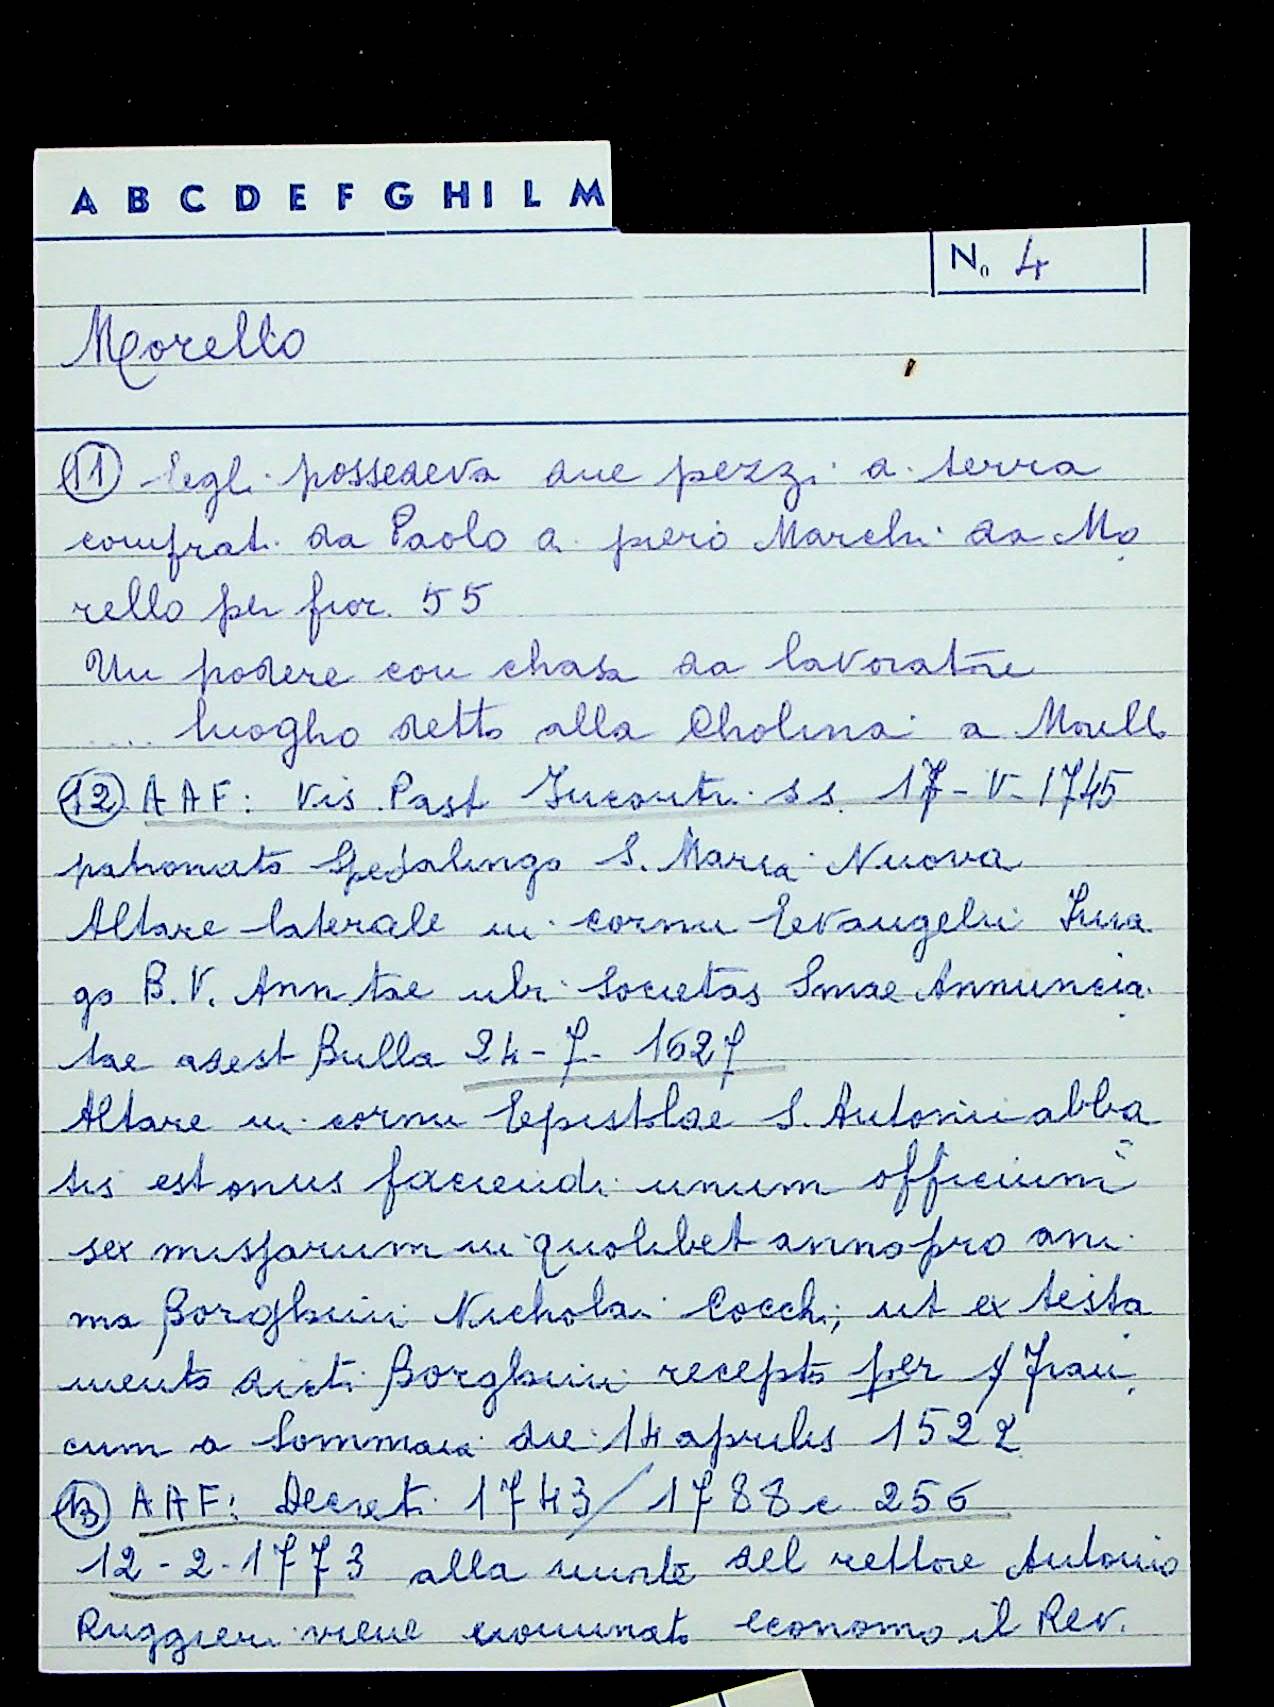 A B C D E F G H I L M
N. 4
Morello
11 Egli possedeva due pezzi di terra
comprati da Paolo di piero Marchi da Mo
rello per fior. 55
Un podere con chasa da lavoratore
.... luogho detto alla Cholina a Morello
12 AAF: Vis Past Incontri ss. 17-V-1745
patronato Spedalingo S. Maria Nuova
Altare laterale in cornu Evangelii Ima
go B.V. Anntae ubi Societas Smae Annuncia
tae adest Bulla 24-7-1627
Altare in cornu Epistolae S. Antonii abba
tis est onus faciendi unum officium
sex missarum in quolibet anno pro ani
ma Borghini Nicholai Cocchi, ut ex testa
mento dicti Borghini recepto per s/ Fran
cum a Sommaia die 14 aprilis 1522
13 AAF: Decreti 1743/1788 c 256
12-2-1773 alla morte del rettore Antonio
Ruggieri viene nominato economo il Rev.